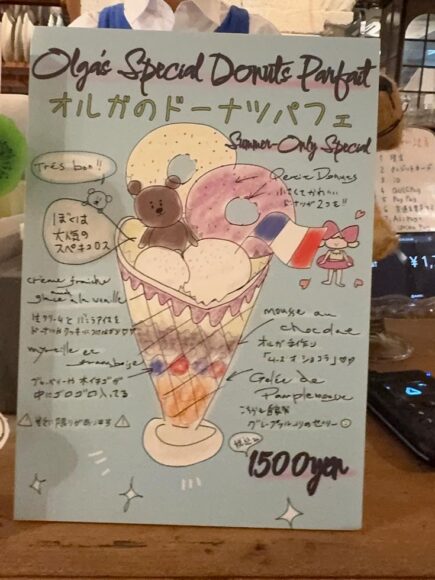 Olga's Special Donuts Parfait
オルガのドーナツパフェ
Summer-Only Special
Très bon!!
ぼくは
大人気の
スペキュロス
Donuts
小さくてかわいい
ドーナツが2コを!!
crème fraîche
and
glace à la vanille
生クリームとバニラアイスを
myrtille et
framboise
ブルーベリーや木イチゴが
中にゴロゴロ入ってる
mousse au
chocolat
オルガ手作り
「ムース オ ショコラ」
Gelée de
Pamplemousse
こちらも自家製
グレープフルーツのゼリー
1500yen